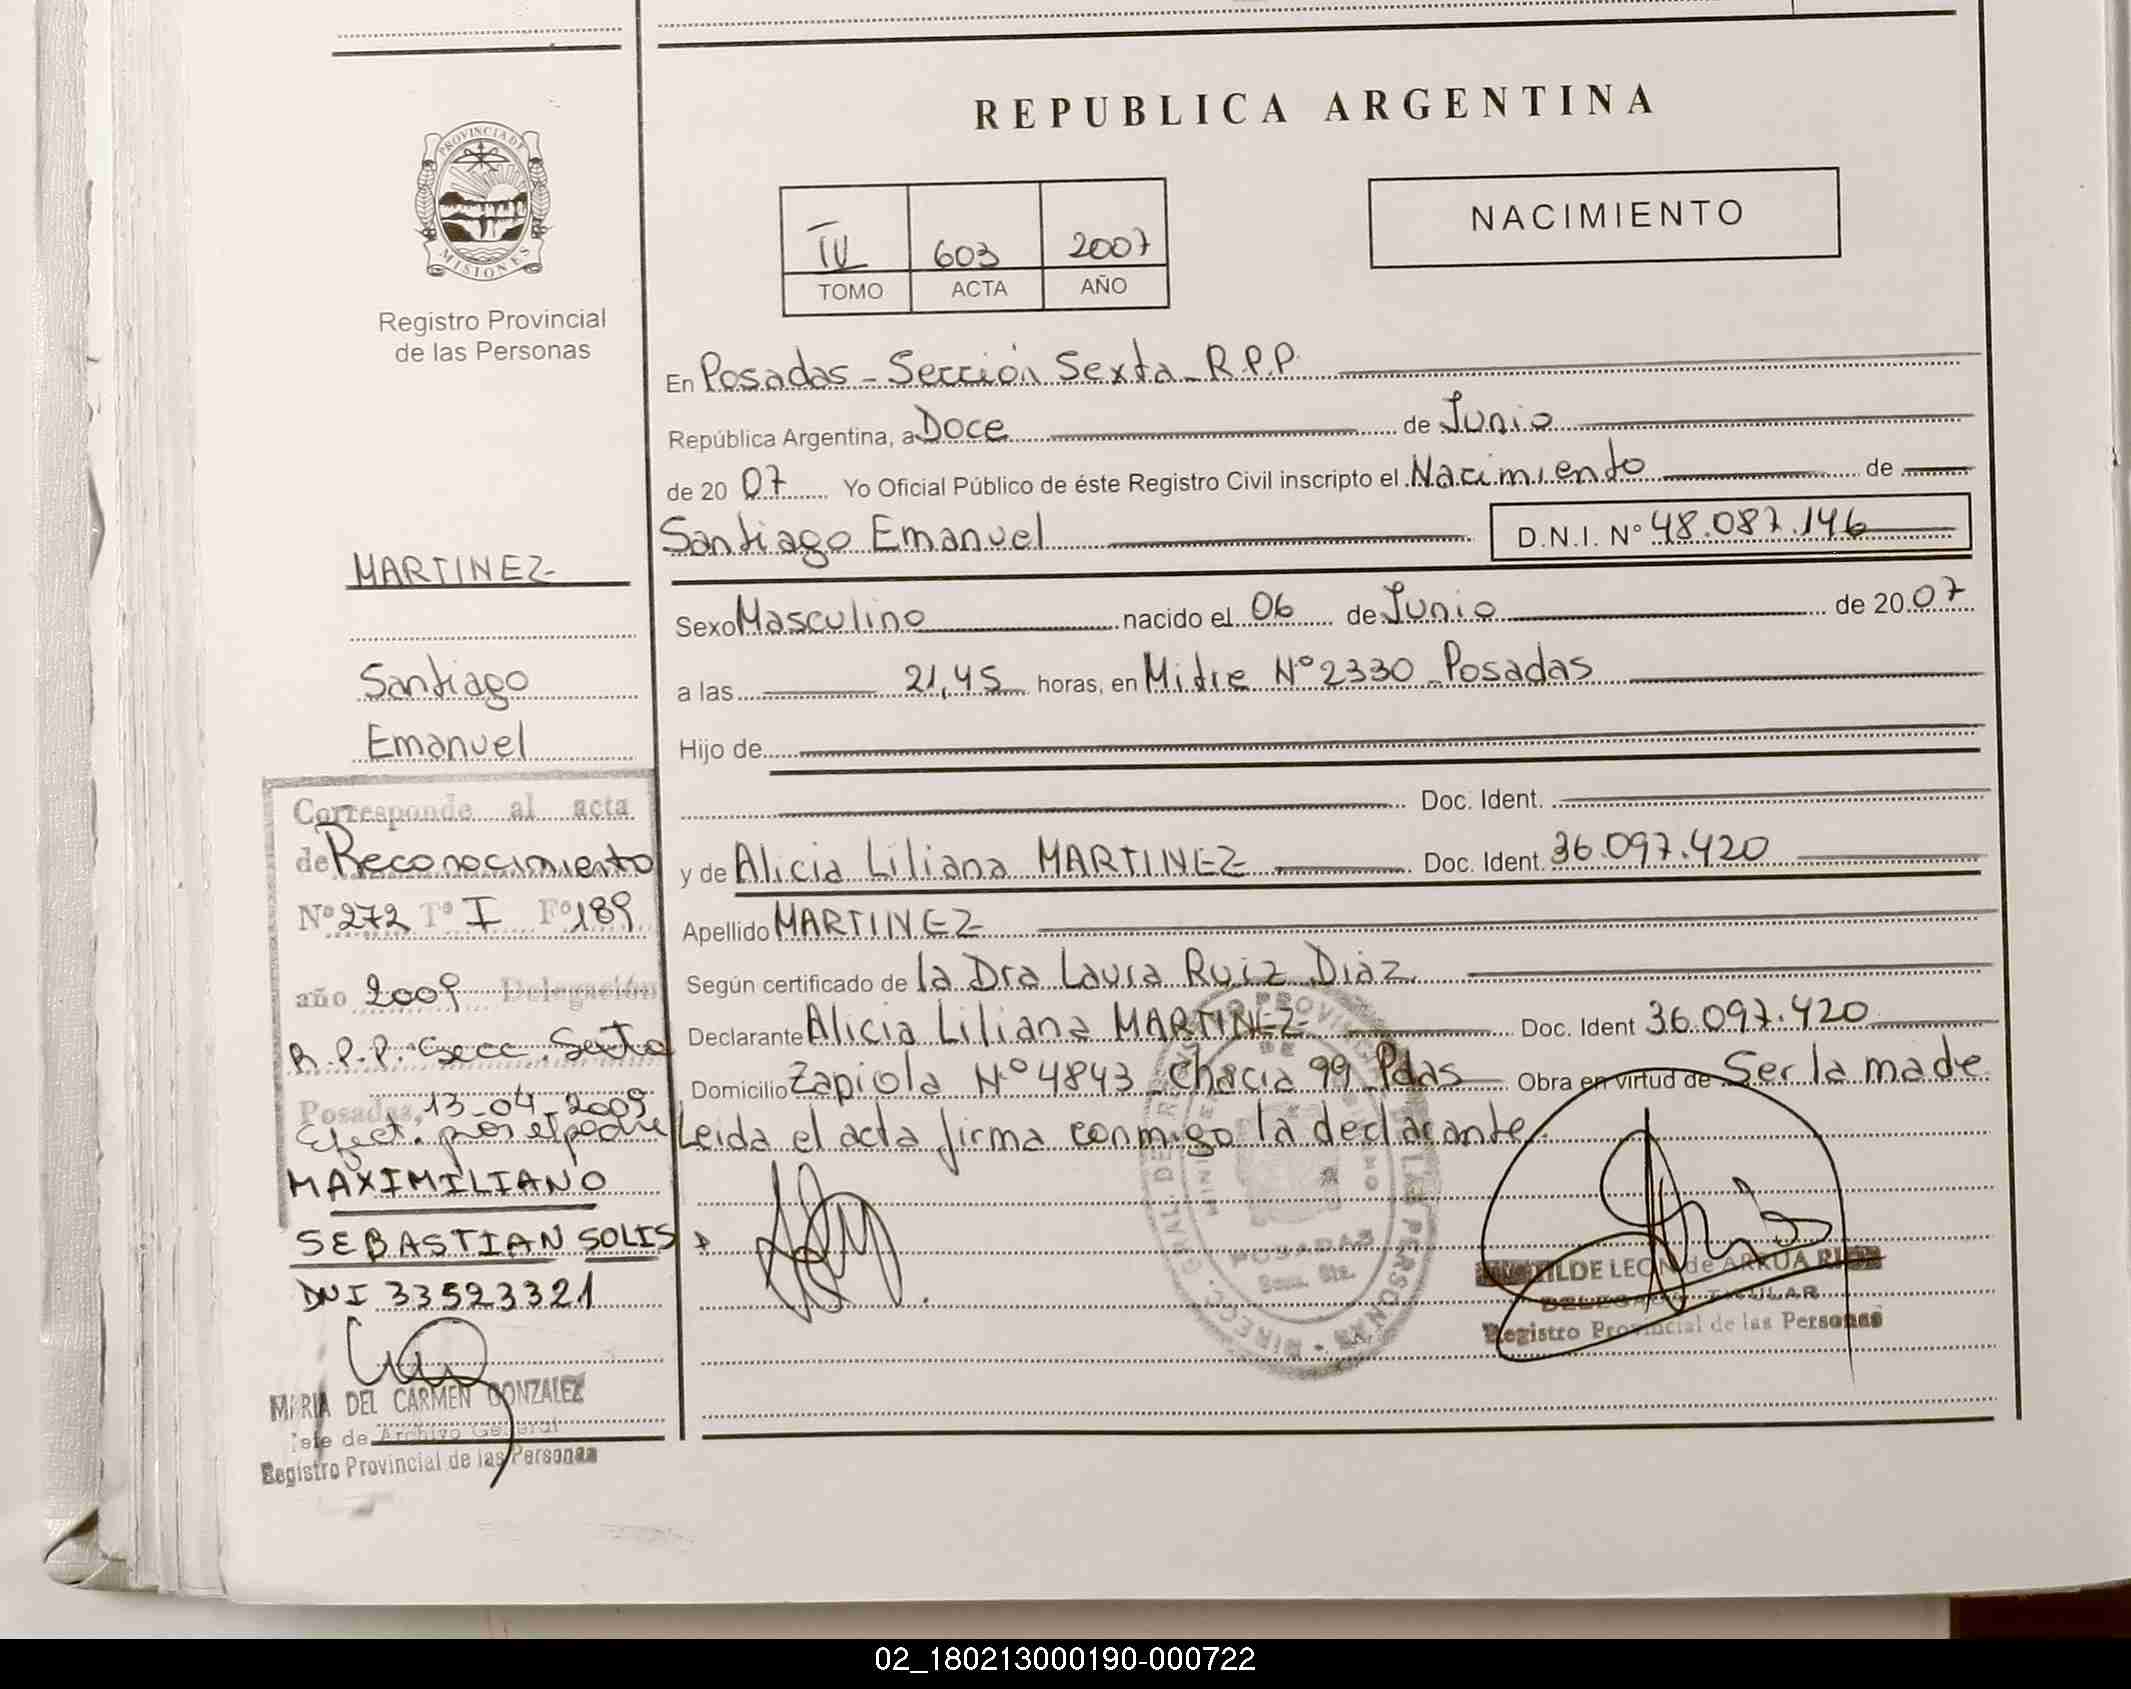 REPUBLICA ARGENTINA
PROVINCIA DE
MISIONES
Registro Provincial
de las Personas
IV 603 2007
TOMO ACTA AÑO
NACIMIENTO
En Posadas - Sección Sexta - R.P.P.
República Argentina, a Doce de Junio
de 20 07 Yo Oficial Público de éste Registro Civil inscripto el Nacimiento de
Santiago Emanuel D.N.I. Nº 48.087.146
Sexo Masculino nacido el 06 de Junio de 20 07
a las 21,45 horas, en Mitre Nº 2330 - Posadas
Hijo de
Doc. Ident.
y de Alicia Liliana MARTINEZ Doc. Ident. 36.097.420
Apellido MARTINEZ
Según certificado de la Dra Laura Ruiz Diaz
Declarante Alicia Liliana MARTINEZ Doc. Ident 36.097.420
Domicilio Zapiola Nº 4843 Chacra 99 Pdas Obra en virtud de Ser la madre
Leida el acta firma conmigo la declarante.
MARTINEZ
Santiago
Emanuel
Corresponde al acta
de Reconocimiento
Nº 272 Tº I Fº 189
año 2009 Delegación
R.P.P. Secc. Sexta
Posadas, 13-04-2009
Efect. por el padre
MAXIMILIANO
SEBASTIAN SOLIS
DNI 33523321
MARIA DEL CARMEN GONZALEZ
Jefe de Archivo General
Registro Provincial de las Personas
POSADAS
DE LAS PERSONAS
LEON de ARRUA
DELEGADA TITULAR
Registro Provincial de las Personas
02_180213000190-000722